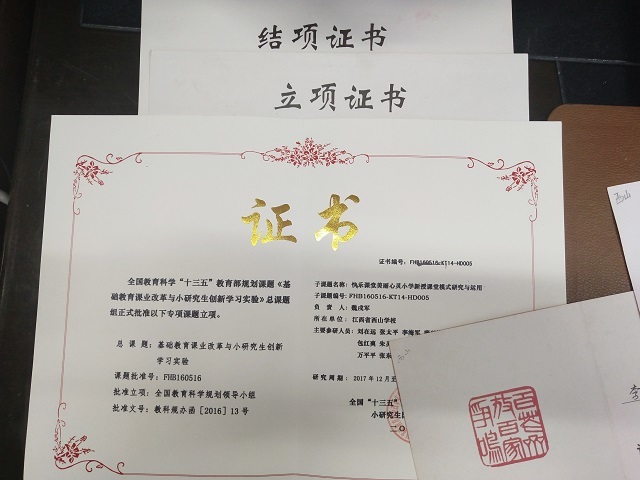 结项证书
立项证书
证书
证书编号：FHB160516-KT14-HD005
全国教育科学“十三五”教育部规划课题《基
础教育课业改革与小研究生创新学习实验》总课题
组正式批准以下专项课题立项。
总 课 题：基础教育课业改革与小研究生创新
学习实验
课题批准号：FHB160516
批准立项：全国教育科学规划领导小组
批准文号：教科规办函［2016］13号
子课题名称：快乐课堂美丽心灵小学新授课课堂模式研究与运用
子课题编号：FHB160516-KT14-HD005
负 责 人：戴戍军
所 在 单 位：江西省西山学校
主要参研人员：刘在远 张太平 李海军
包红爽 朱
万平平 张东
研究周期：2017年12月
全国“十三五
小研究生
二〇
百花齐
放百家
争鸣
李